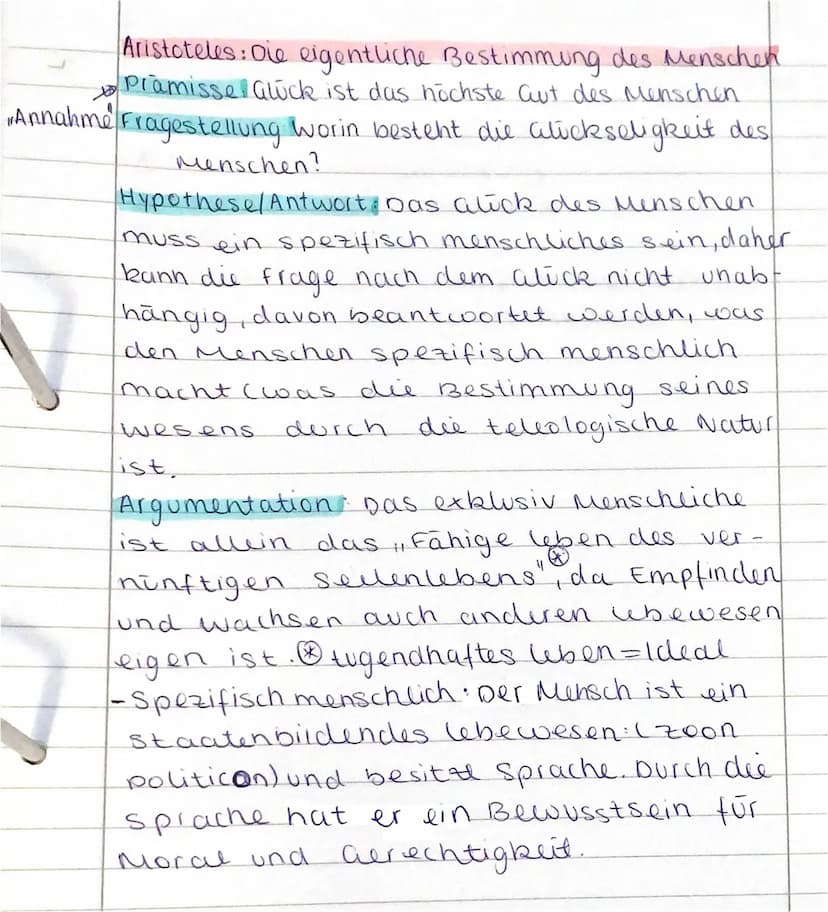 Aristoteles: Die eigentliche Bestimmung des Menschen
Prämisse: Glück ist das höchste Gut des Menschen
„Annahme" Fragestellung Worin besteht die Glückseligkeit des
Menschen?
Hypothese/Antwort: Das Glück des Menschen
muss ein spezifisch menschliches sein, daher
kann die Frage nach dem Glück nicht unab-
hängig, davon beantwortet werden, was
den Menschen spezifisch menschlich
macht (was die Bestimmung seines
Wesens durch die teleologische Natur
ist.
Argumentation: Das exklusiv Menschliche
ist allein das „Fähige leben des ver-
nünftigen Seelenlebens"⊛, da Empfinden
und Wachsen auch anderen Lebewesen
eigen ist. ⊛ tugendhaftes Leben = Ideal
- Spezifisch menschlich: Der Mensch ist ein
staatenbildendes Lebewesen: (zoon
politicon) und besitzt Sprache. Durch die
Sprache hat er ein Bewusstsein für
Moral und Gerechtigkeit.